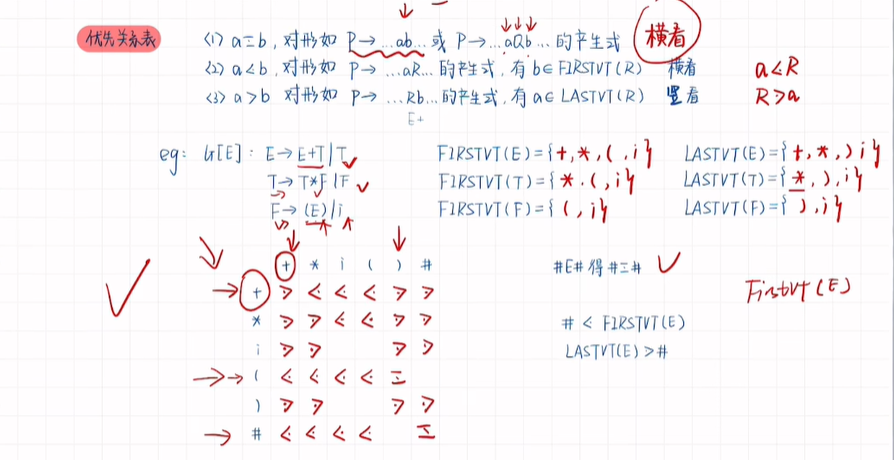 优先关系表
(1) a=b, 对形如 P→...ab... 或 P→...aQb... 的产生式 横看
(2) a<b, 对形如 P→...aR... 的产生式, 有 b∈FIRSTVT(R) 横看 a<R
(3) a>b 对形如 P→...Rb... 的产生式, 有 a∈LASTVT(R) 竖看 R>a
E+
eg: G[E]: E→E+T|T FIRSTVT(E)={+,*,(,i} LASTVT(E)={+,*,),i}
T→T*F|F FIRSTVT(T)={*,(,i} LASTVT(T)={*,),i}
F→(E)|i FIRSTVT(F)={(,i} LASTVT(F)={),i}
+ * i ( ) #
+ > < < < > >
* > > < < > >
i > > > >
( < < < < =
) > > > >
# < < < < =
#E# 得 #=#
FirstVT(E)
# < FIRSTVT(E)
LASTVT(E)>#